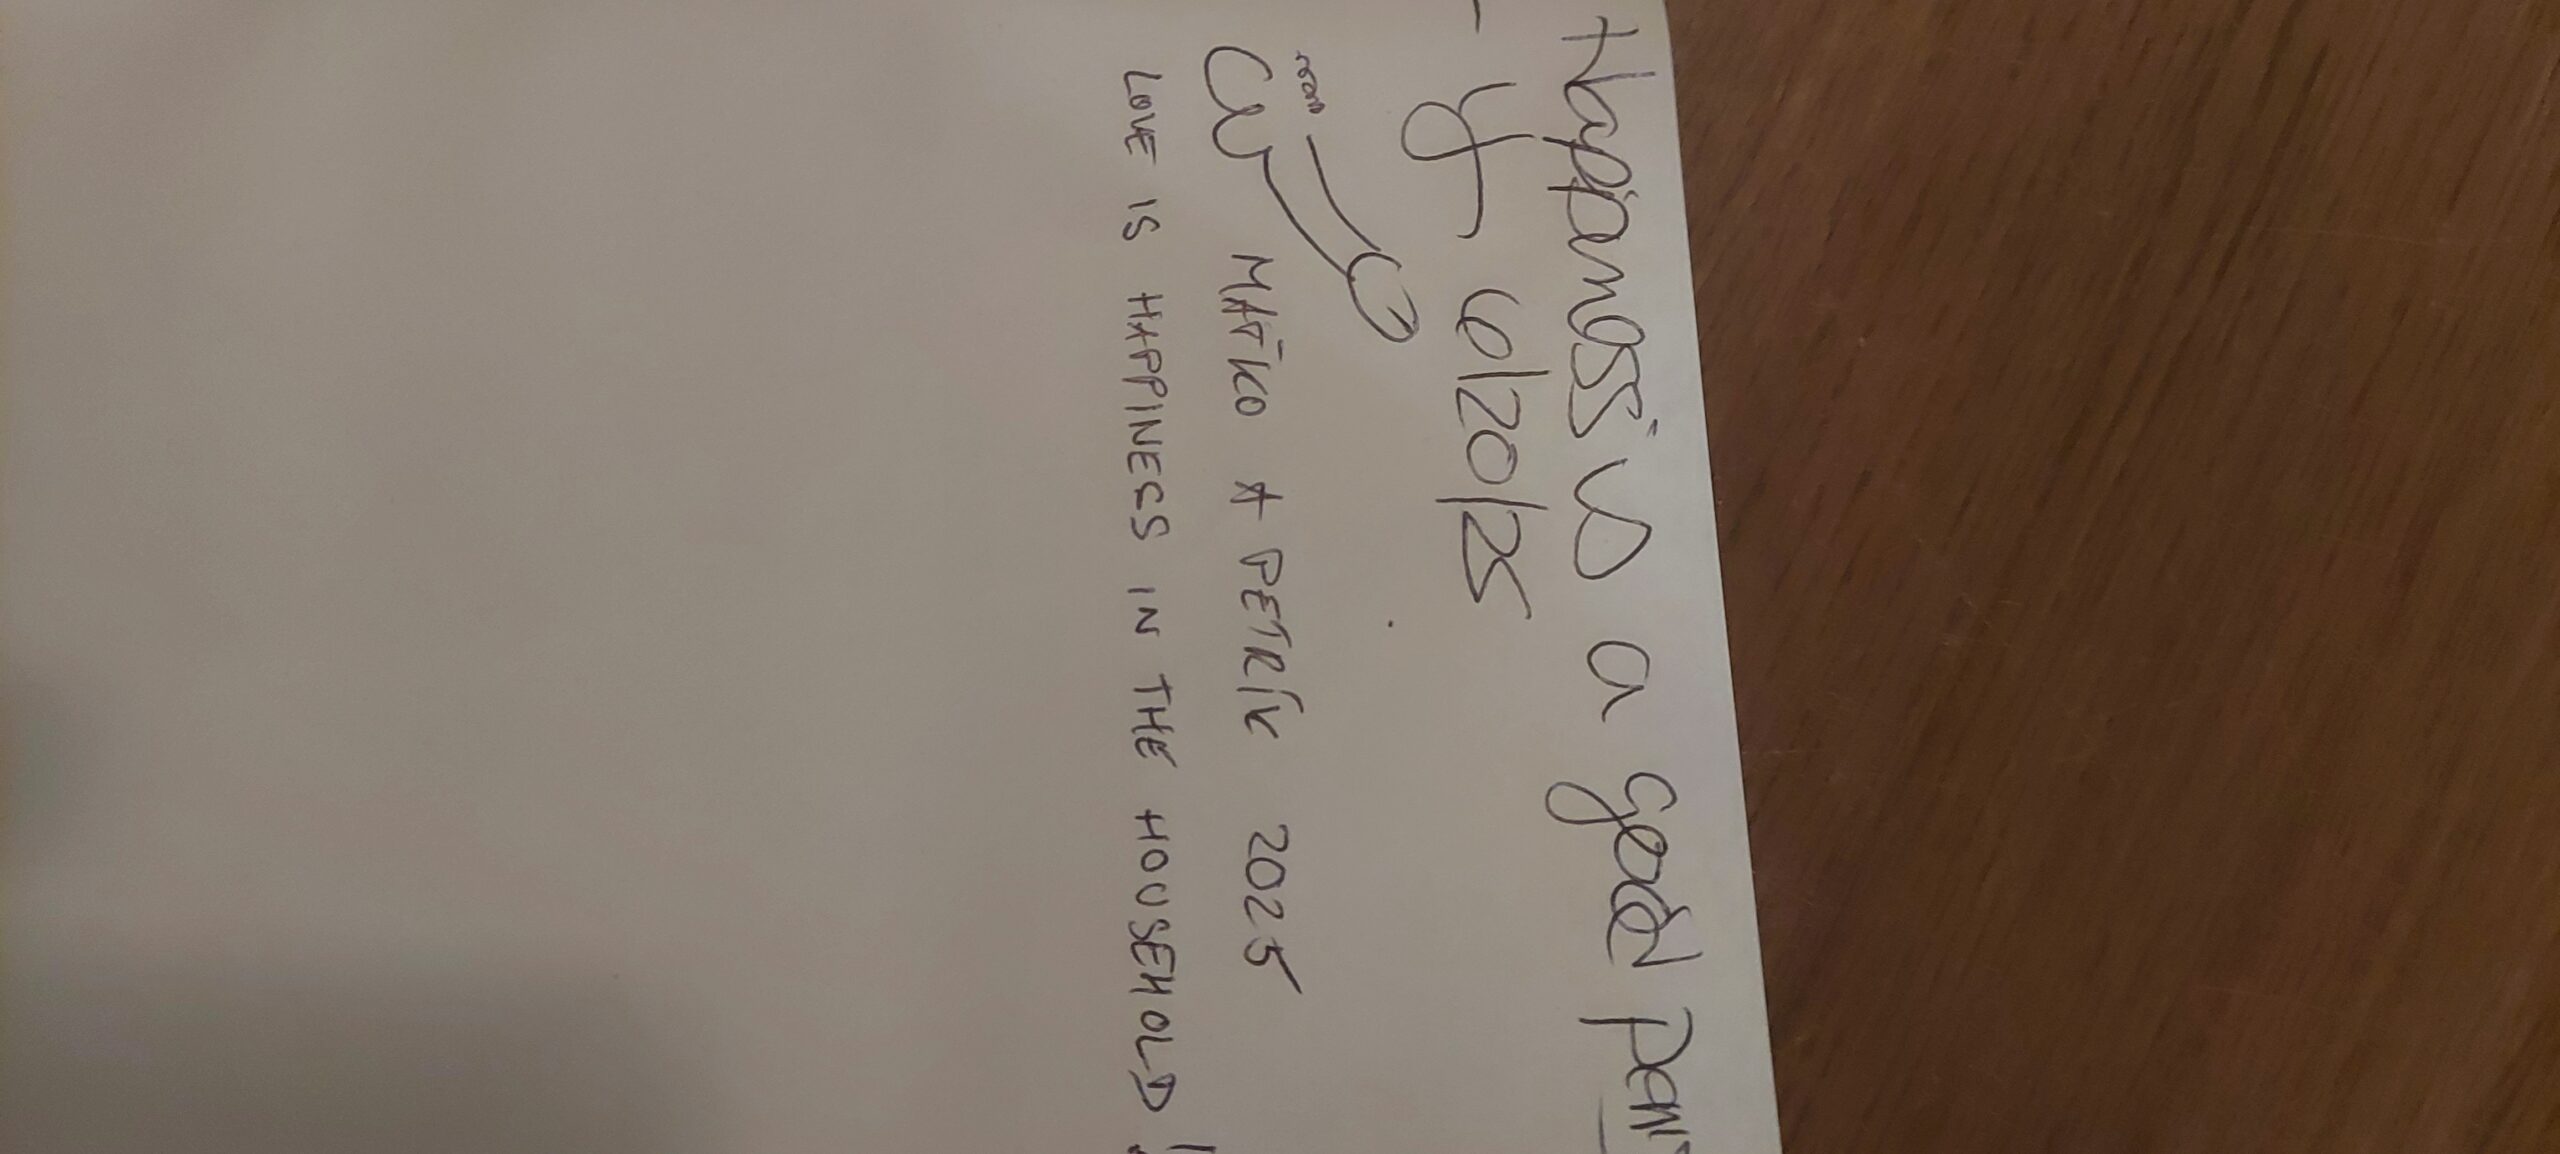 Happiness is a good
- 6/20/25
MAŤKO A PETRÍK 2025
LOVE IS HAPPINESS IN THE HOUSEHOLD!